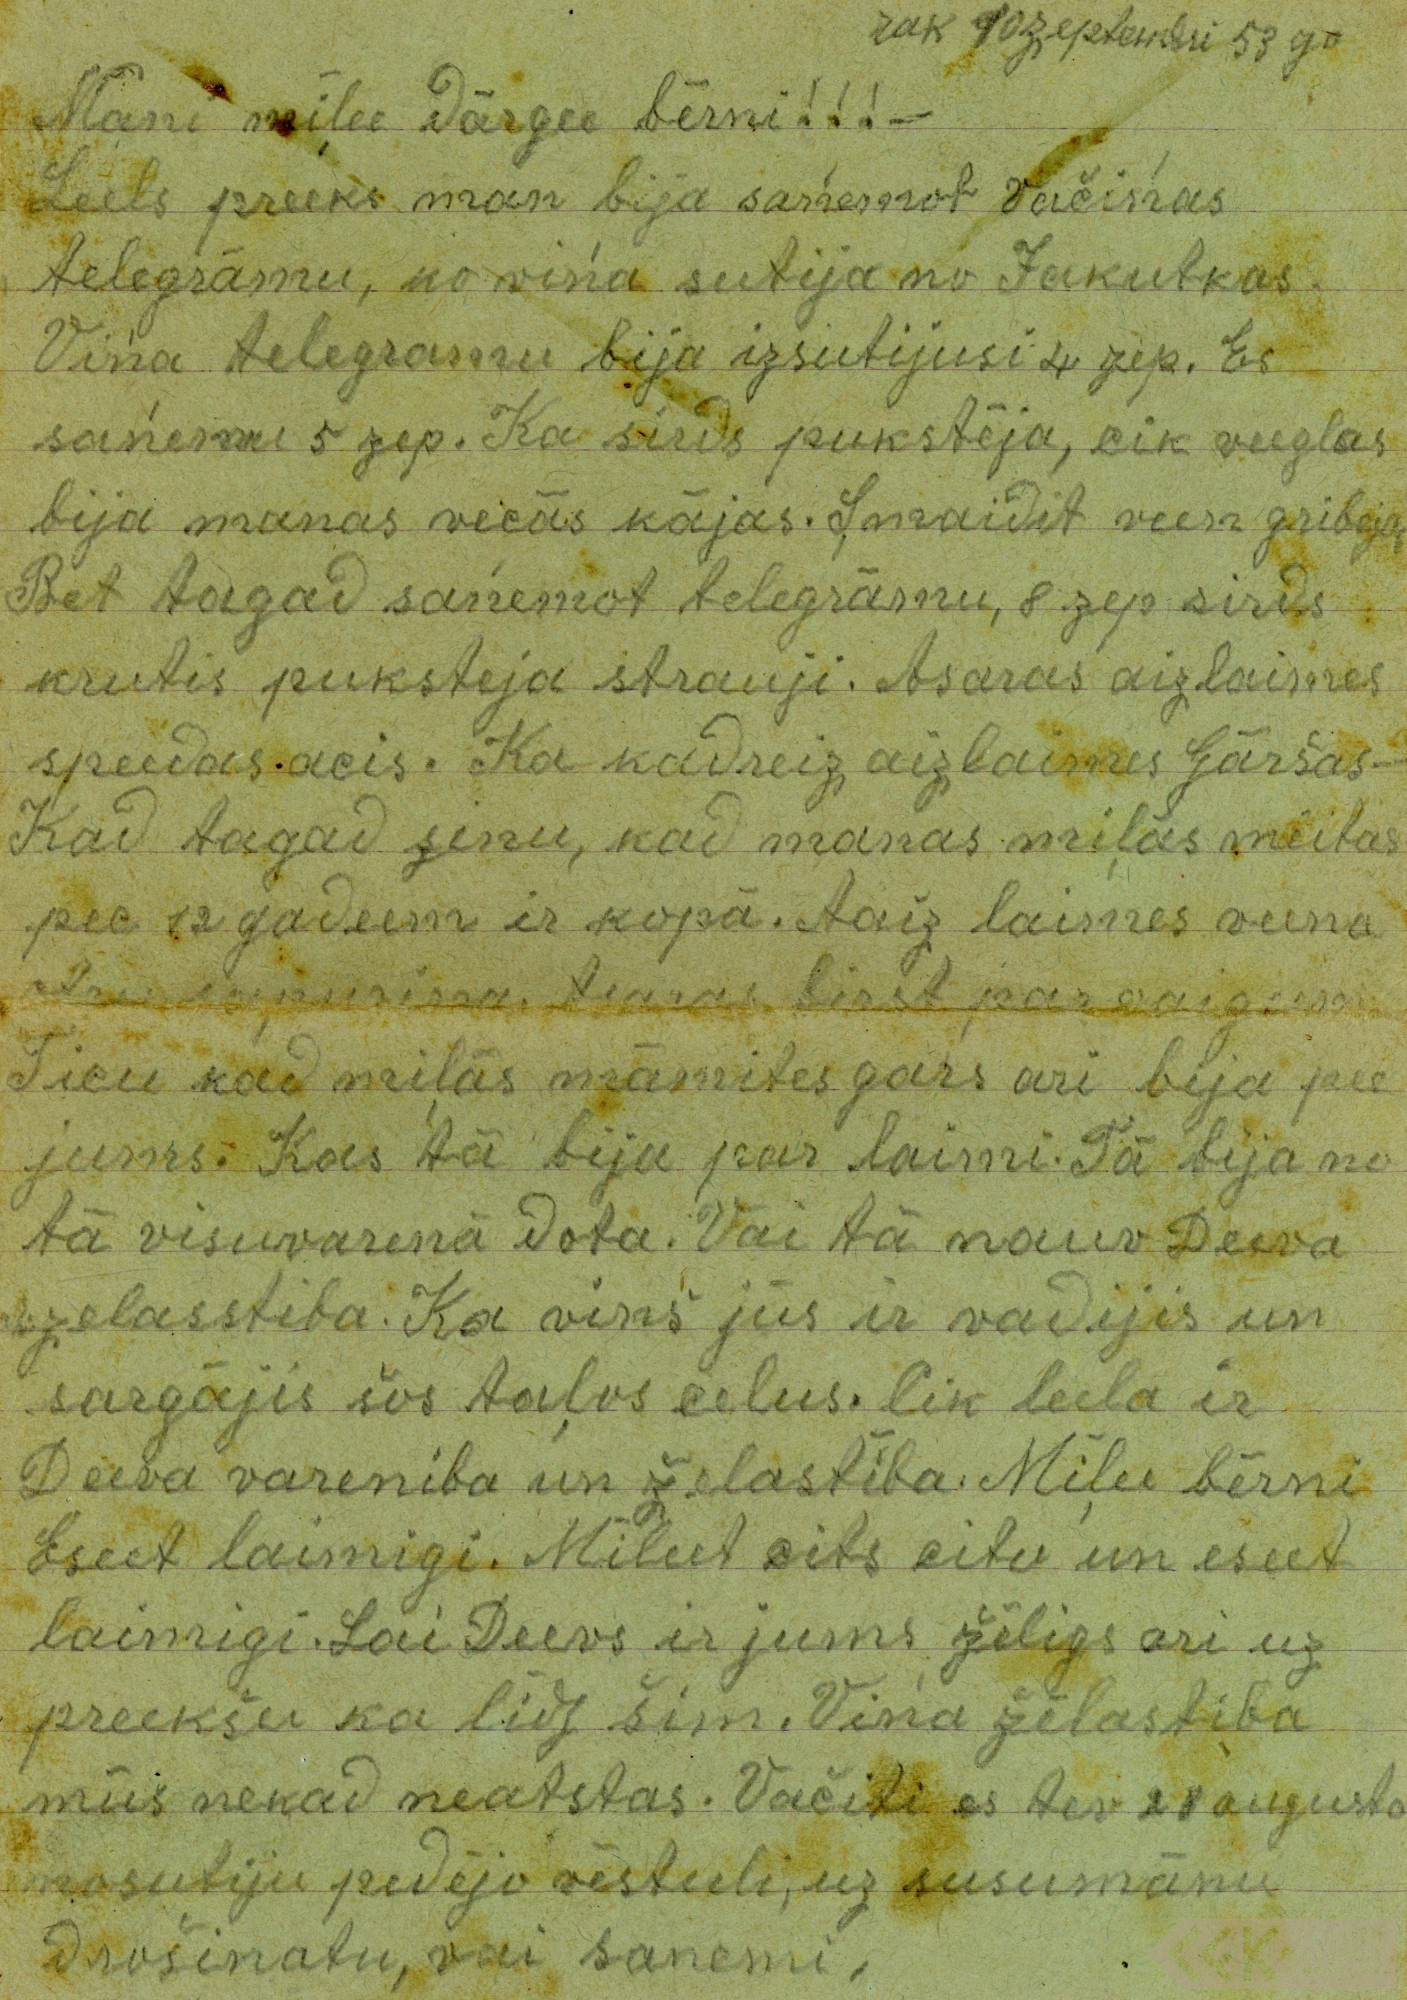 rak 10 zeptembri 53 go
Mani miļee Dārgee bērni!!!—
Leels preeks man bija sańemot Vačińas
telegrāmu, ko vińa sutija no Jakutkas.
Vińa telegramu bija izsutijusi 4 zep. Es
sańemu 5 zep. Ka sirds pukstēja, cik veeglas
bija manas vecās kājas. Smaidit veen gribejas
Bet tagad sańemot telegrāmu, 8 zep sirds
krutis puksteja strauji. Asaras aizlaimes
speedas acis. Ka kadreiz aizlaimes Gāršas—
Kad tagad zinu, kad manas miļās meitas
pec 12 gadeem ir kopā. Aaiz laimes veena
birst par vaigeem
Ticu kad miļās māmites gars ari bija pee
jums. Kas tā bija par laimi. Tā bija no
tā visuvarenā dota. Vai tā nauv Deeva
zelasstiba. Ka vińš jūs ir vadijis un
sargājis šos taļos celus. Cik leela ir
Deeva vareniba un želastiba. Miļee bērni
Eseet laimigi. Mileet cits citu un eseet
laimigi. Lai Deevs ir jums žēligs ari uz
preekšu ka lidz šim. Vińa žēlastiba
mūs nekad neatstas. Vačiti es tev 28 augusta
nosutiju pedējo vēstuli, uz susumānu
Drošinatu, vai sanemi,